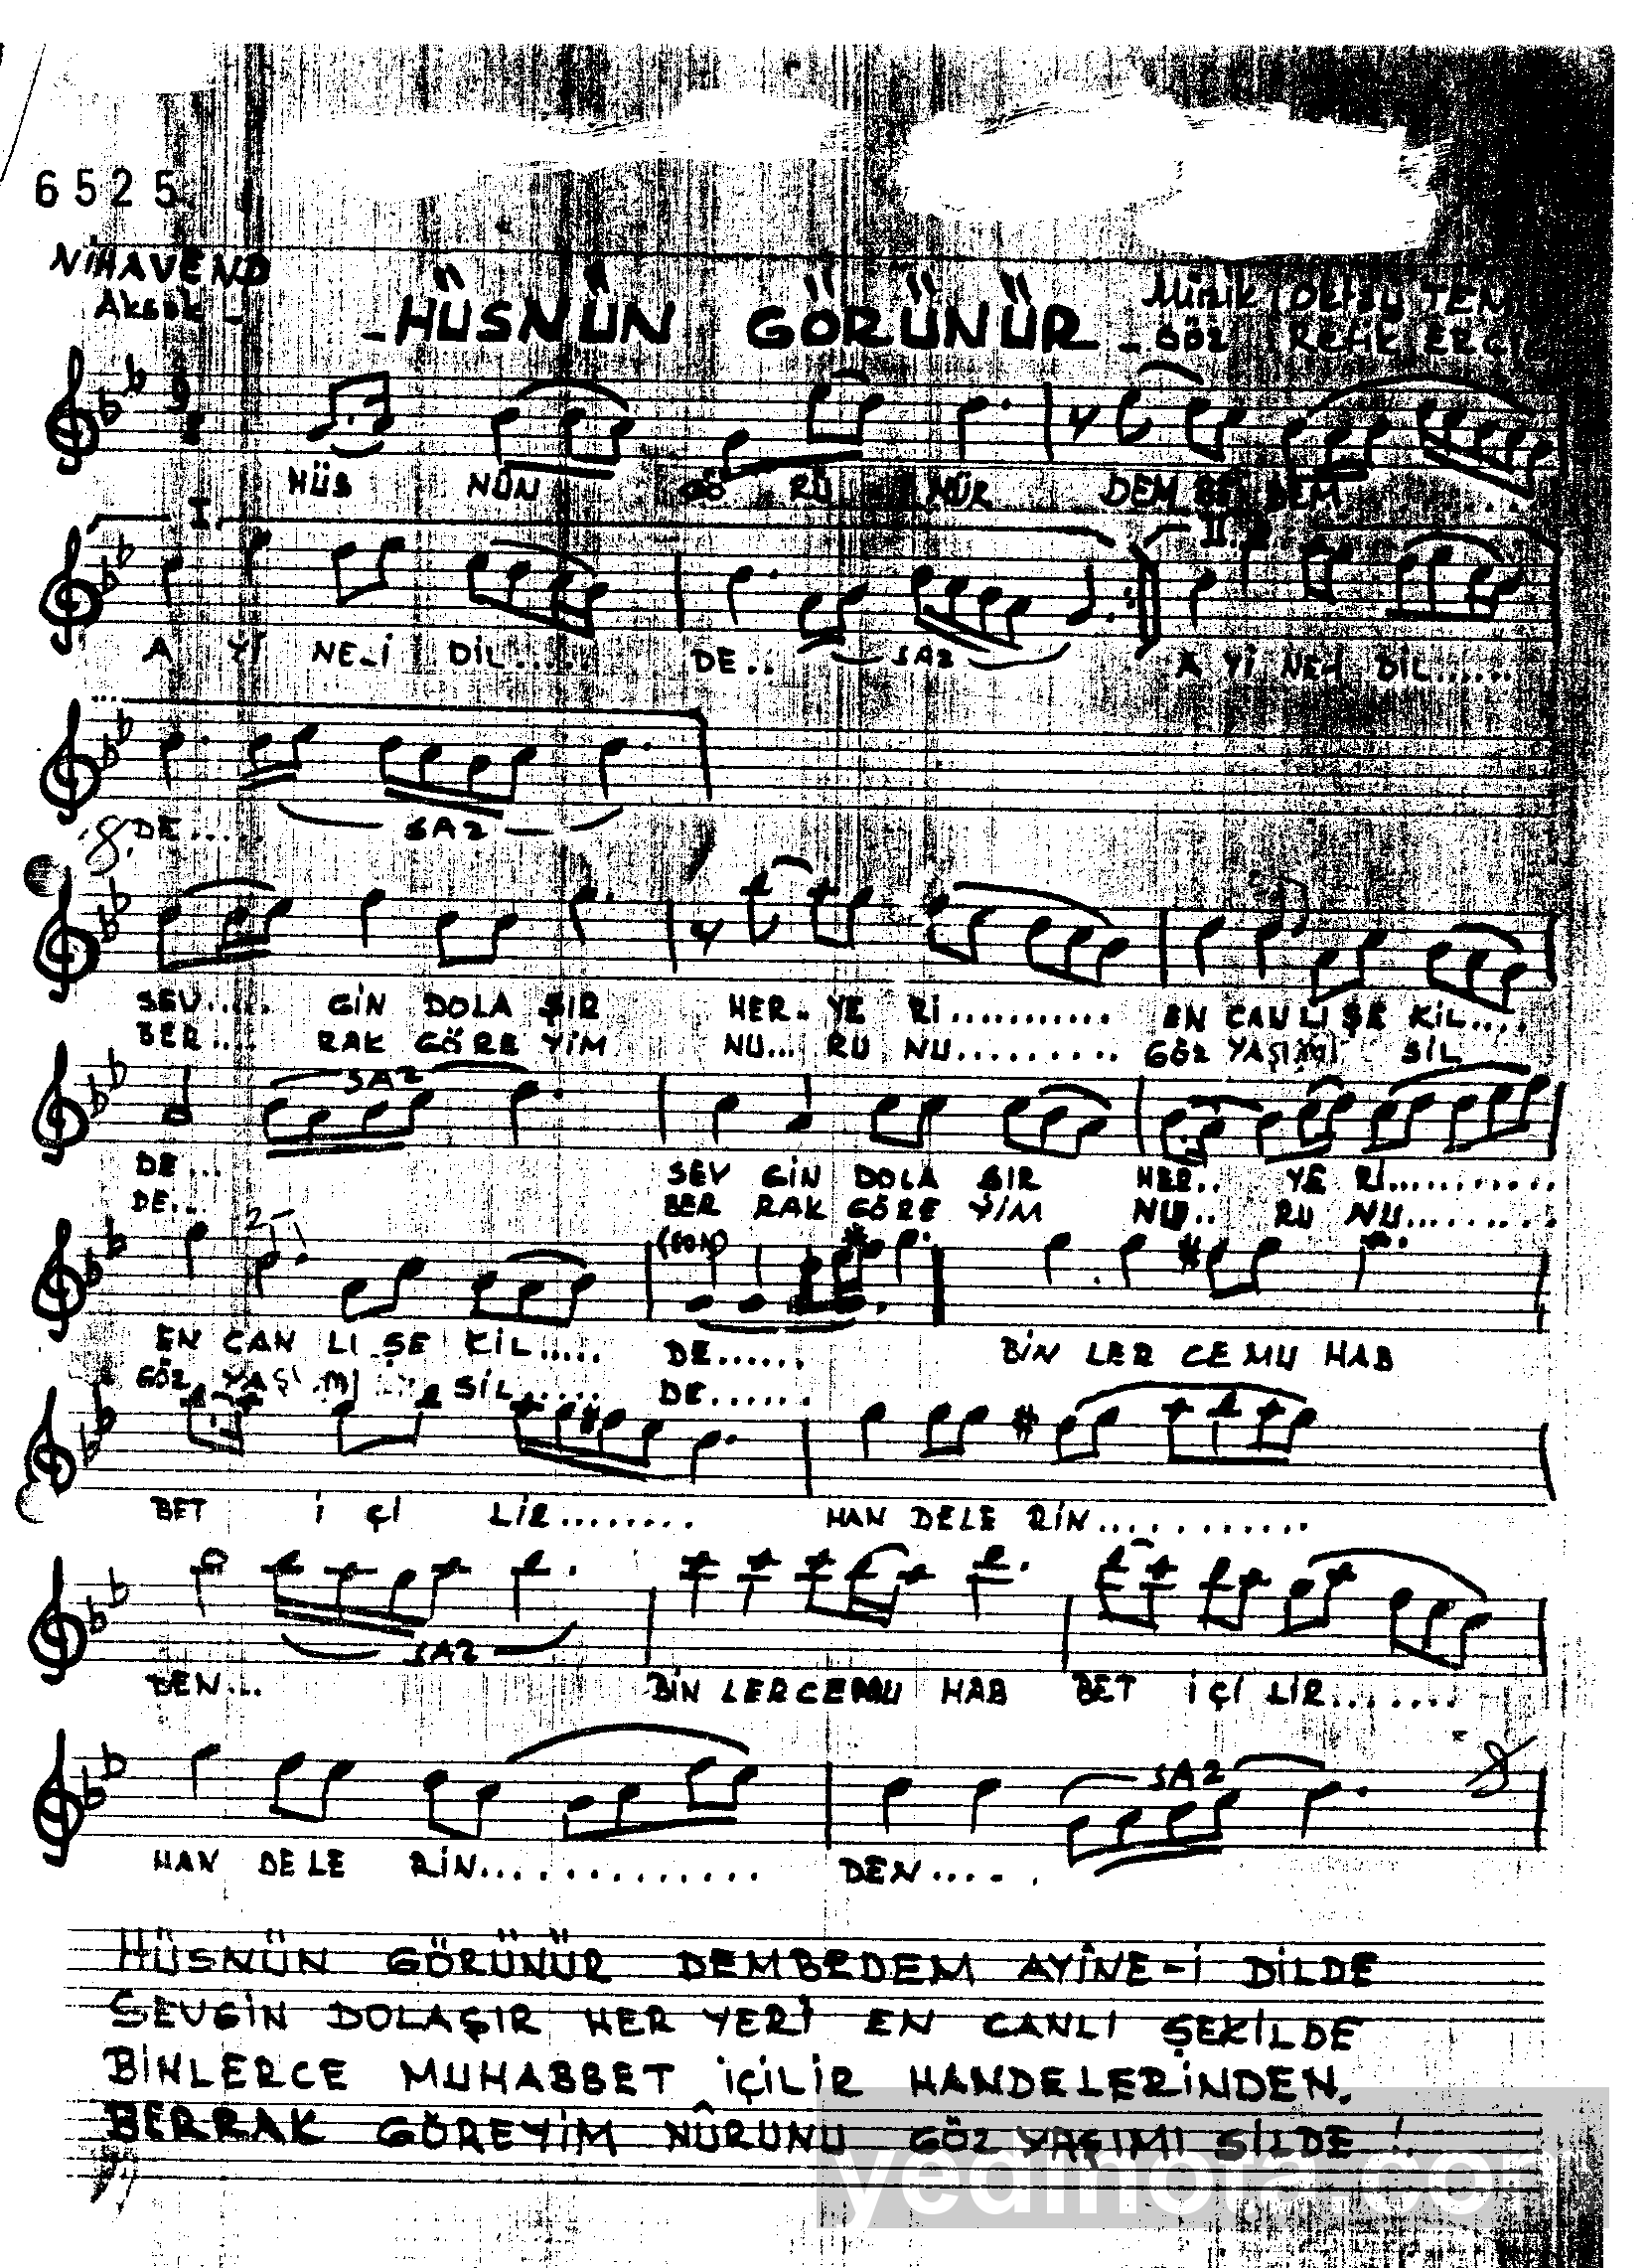 6525
NİHAVEND
Aksak -
- HÜSNÜN GÖRÜNÜR -
Müzik: Oktay TEM
Söz: Refik ER
HÜS NÜN GÖ RÜ NÜR DEM BE DEM
I II
A Yİ NE-İ DİL...... DE.. SAZ A Yİ NE-İ DİL......
DE..... SAZ
SEV..... GİN DOLA ŞIR HER.. YE Rİ........... EN CANLI ŞE KİL....
BER.... RAK GÖRE YİM NU... RU NU......... GÖZ YAŞIMI SİL
SAZ
DE... SEV GİN DOLA ŞIR HER.. YE Rİ...........
DE... BER RAK GÖRE YİM NU.. RU NU.........
(SON)
EN CAN LI ŞE KİL..... DE...... BİN LER CE MU HAB
GÖZ YAŞI MI SİL..... DE.......
BET İ Çİ LİR........ HAN DELE RİN............
SAZ
DEN... BİN LERCEMU HAB BET İ Çİ LİR.......
SAZ
HAN DELE RİN............. DEN.....
HÜSNÜN GÖRÜNÜR DEMBEDEM AYÎNE-İ DİLDE
SEVGİN DOLAŞIR HER YERİ EN CANLI ŞEKİLDE
BİNLERCE MUHABBET İÇİLİR HANDELERİNDEN.
BERRAK GÖREYİM NÛRUNU GÖZ YAŞIMI SİLDE !.
yedinota.com